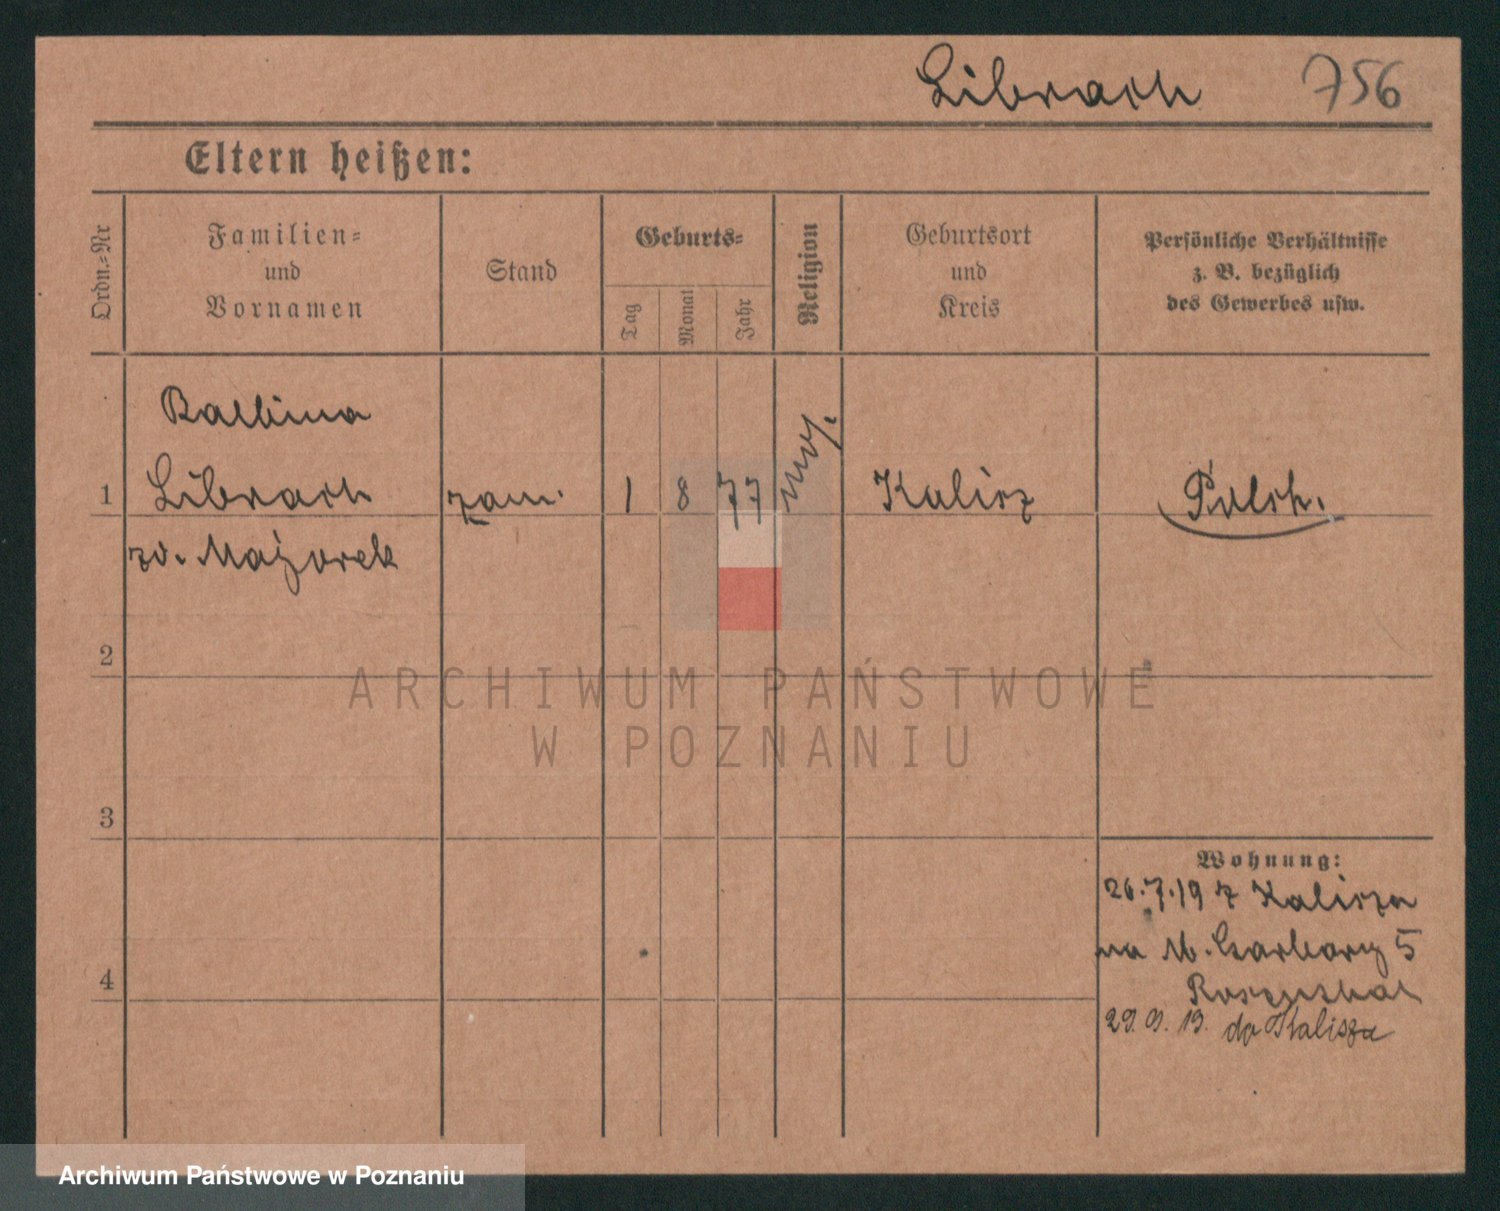 Librach 756
Eltern heißen:
Ordn.-Nr
Familien-
und
Vornamen
Stand
Geburts-
Tag
Monat
Jahr
Religion
Geburtsort
und
Kreis
Persönliche Verhältnisse
z. B. bezüglich
des Gewerbes usw.
Balbina
1 Librach zam. 1 8 77 moj. Kalisz Polsk.
zd. Mazurek
2
3
4
Wohnung:
26.7.19 z Kalisza
na M. Garbary 5
Rosenthal
29.9.19. do Kalisza
ARCHIWUM PAŃSTWOWE
W POZNANIU
Archiwum Państwowe w Poznaniu